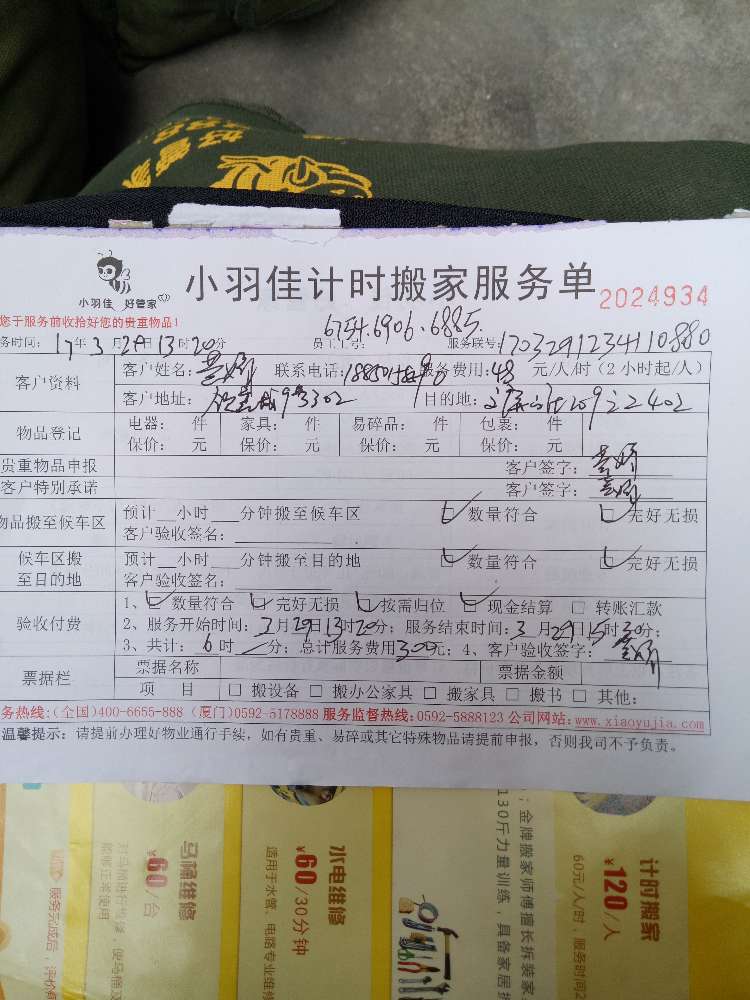 好管家
小羽佳 好管家
小羽佳计时搬家服务单
2024934
您于服务前收拾好您的贵重物品!
6754.6906.6885.
务时间: 17年3月29日13时20分 员工工号: 服务联号: 1703291234110880
客户资料
客户姓名: 联系电话: 服务费用:45 元/人/时(2小时起/人)
客户地址: 9号302 目的地: 209号22402
物品登记
电器: 件 家具: 件 易碎品: 件 包裹: 件
保价: 元 保价: 元 保价: 元 保价: 元
贵重物品申报 客户签字:
客户特别承诺 客户签字:
物品搬至候车区
预计__小时___分钟搬至候车区 ☑数量符合 ☑完好无损
客户验收签名:
候车区搬
至目的地
预计__小时___分钟搬至目的地 ☑数量符合 ☑完好无损
客户验收签名:
验收付费
1、☑数量符合 ☑完好无损 ☑按需归位 ☑现金结算 □转账汇款
2、服务开始时间:3月29日13时20分; 服务结束时间:3月29日15时30分;
3、共计: 6时/分; 总计服务费用300元; 4、客户验收签字:
票据栏
票据名称 票据金额
项 目 □搬设备 □搬办公家具 □搬家具 □搬书 □其他:
务热线:(全国)400-6655-888 (厦门)0592-5178888 服务监督热线:0592-5888123 公司网站:www.xiaoyujia.com
温馨提示: 请提前办理好物业通行手续,如有贵重、易碎或其它特殊物品请提前申报,否则我司不予负责。
计时搬家
¥120/人
60元/人/时,服务时间2
金牌搬家师傅擅长拆装家
130斤力量训练,具备家居
水电维修
¥60/30分钟
适用于水管、电路专业维
马桶维修
¥60/台
服务完成后,